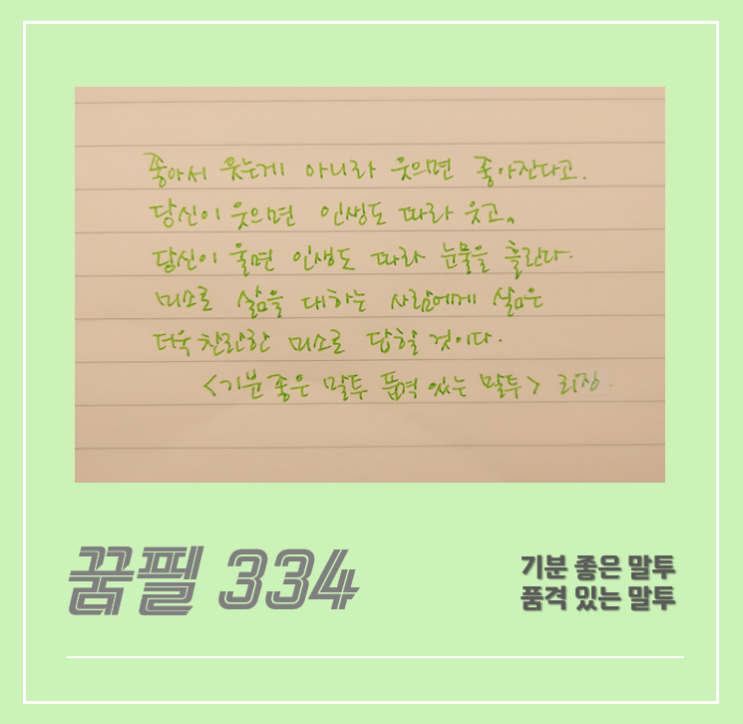 좋아서 웃는게 아니라 웃으면 좋아진다고.
당신이 웃으면 인생도 따라 웃고,
당신이 울면 인생도 따라 눈물을 흘린다.
미소로 삶을 대하는 사람에게 삶은
더욱 찬란한 미소로 답할 것이다.
<기분 좋은 말투 품격 있는 말투> 리정
꿈필 334
기분 좋은 말투
품격 있는 말투